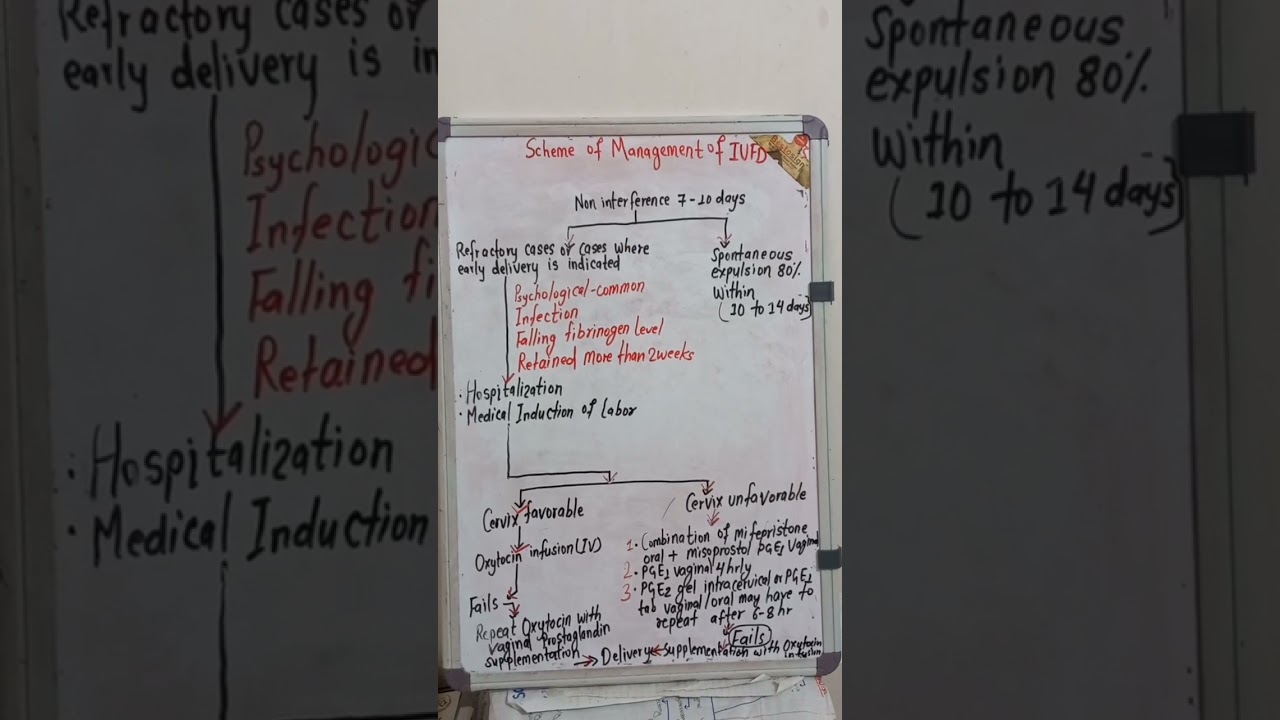 Scheme of Management of IUFD
Non interference 7-10 days
Refractory cases or cases where
early delivery is indicated
Spontaneous
expulsion 80%
Within
(10 to 14 days)
Psychological-common
Infection
Falling fibrinogen level
Retained more than 2 weeks
• Hospitalization
• Medical Induction of labor
Cervix favorable
Oxytocin infusion (IV)
Fails
Repeat Oxytocin with
vaginal Prostaglandin
supplementation
Cervix unfavorable
1. Combination of mifepristone
oral + misoprostol PGE1 Vaginal
2. PGE1 vaginal 4 hrly
3. PGE2 gel intracervical or PGE1
tab vaginal/oral may have to
repeat after 6-8 hr
Fails
supplementation with Oxytocin
infusion
Delivery
Refractory cases or
early delivery is in
Psychologic
Infection
Falling fi
Retained
• Hospitalization
• Medical Induction
Spontaneous
expulsion 80%
Within
(10 to 14 days)